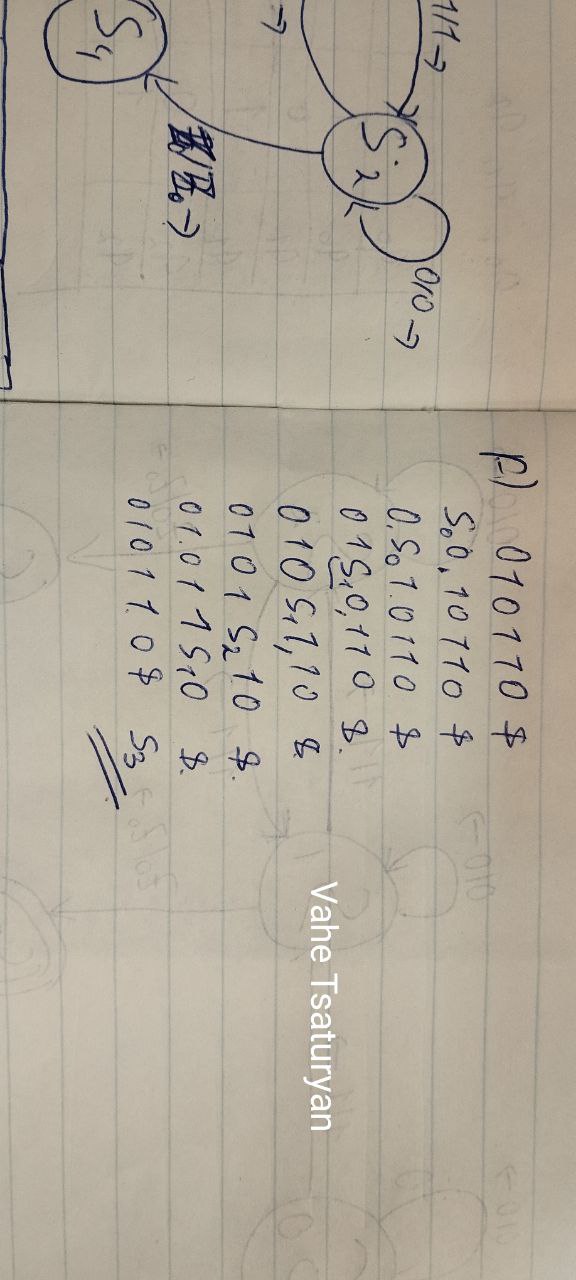 1/1 →
S2
0/0 →
→
Z0/Z0 →
S4
F) 010110 $
S00,10110 $
0,S01.0110 $
01S10,110 $.
010S11,10 $
0101S210 $.
01.011S10 $.
010110$ S3
Vahe Tsaturyan